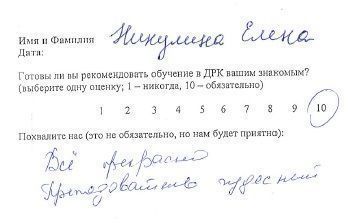 Имя и Фамилия Никулина Елена
Дата:
Готовы ли вы рекомендовать обучение в ДРК вашим знакомым?
(выберите одну оценку; 1 – никогда, 10 – обязательно)
1 2 3 4 5 6 7 8 9 10
Похвалите нас (это не обязательно, но нам будет приятно):
Всё прекрасно
Преподаватель чудесный